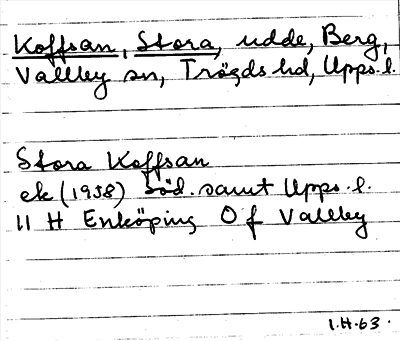 Koffsan, Stora, udde, Berg,
Vallby sn, Trögds hd, Upps. l.
Stora Koffsan
ek (1958) Söd. samt Upps. l.
11 H Enköping O f Vallby
1.H.63.